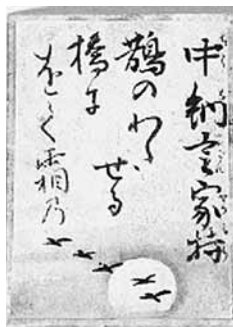 中納言家持
鵲のわたせる
橋に
おく霜乃